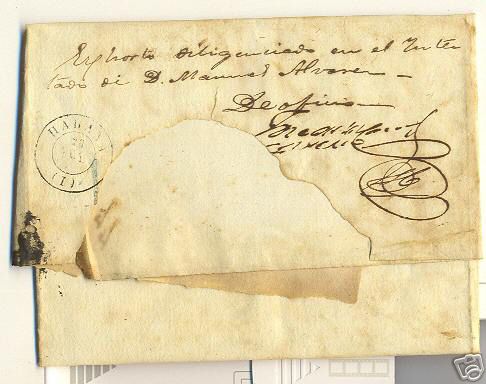 Exhorto diligenciado en el Inte
tado de D. Manuel Alvarez
De oficio
HABANA
(1)